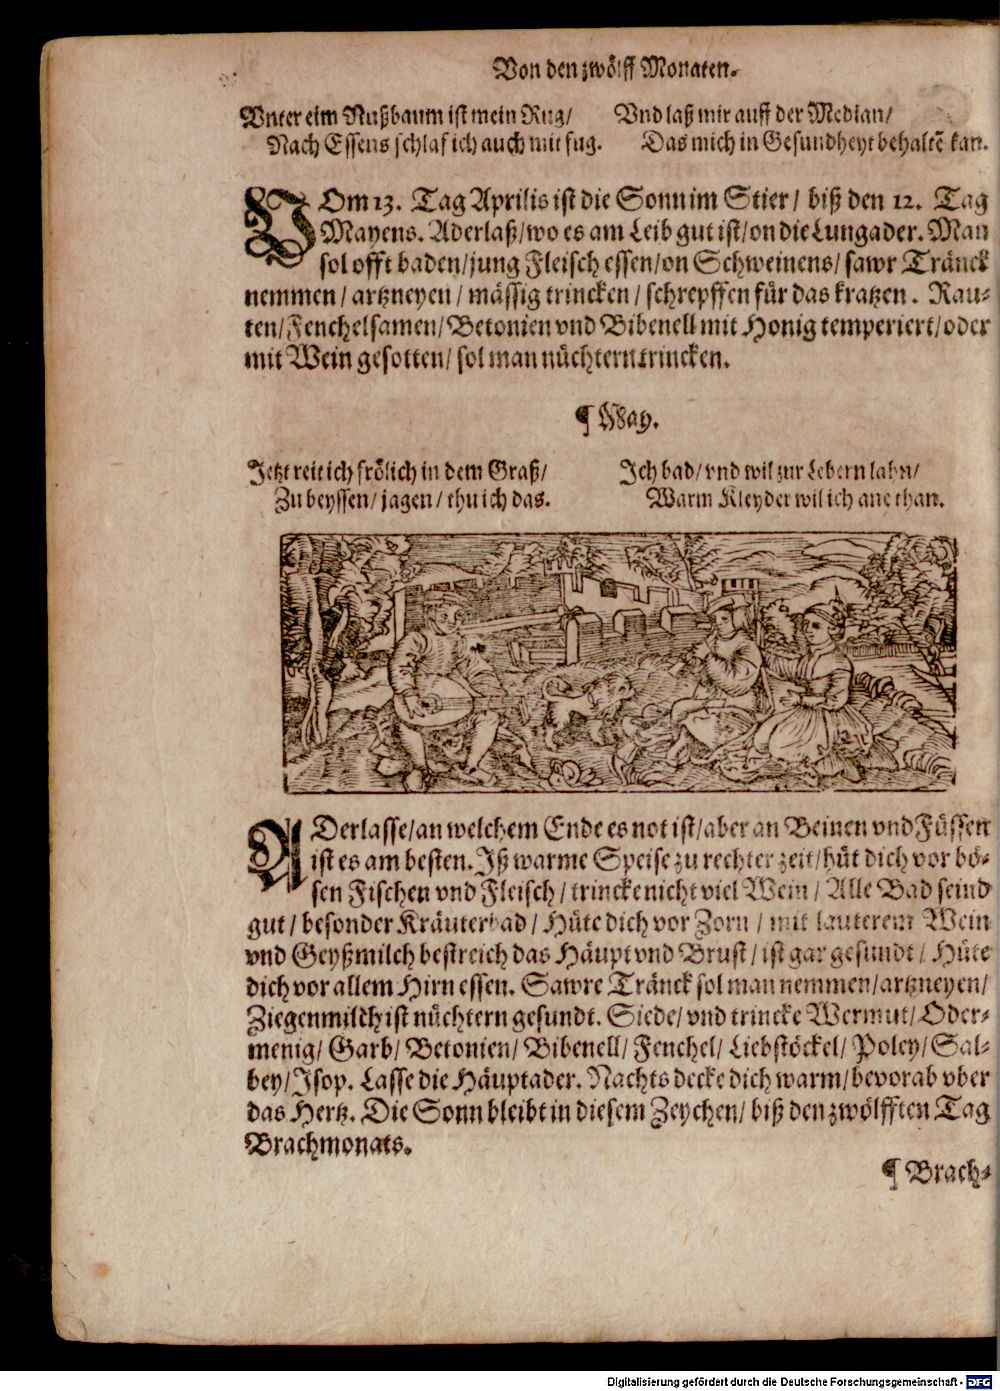 Von den zwölff Monaten.
Vnter eim Nußbaum ist mein Rug/
Nach Essens schlaf ich auch mit fug.
Vnd laß mir auff der Median/
Das mich in Gesundheyt behaltẽ kan.
VOm 13. Tag Aprilis ist die Sonn im Stier/ biß den 12. Tag
Mayens. Aderlaß/ wo es am Leib gut ist/ on die Lungader. Man
sol offt baden/ jung Fleisch essen/ on Schweinens/ sawr Tränck
nemmen/ artzneyen/ mässig trincken/ schrepffen für das kratzen. Rau-
ten/ Fenchelsamen/ Betonien vnd Bibenell mit Honig temperiert/ oder
mit Wein gesotten/ sol man nüchtern trincken.
¶ May.
Jetzt reit ich frölich in dem Graß/
Zu beyssen/ jagen/ thu ich das.
Ich bad/ vnd wil zur Lebern lahn/
Warm Kleyder wil ich ane than.
ADerlasse/ an welchem Ende es not ist/ aber an Beinen vnd Füssen
ist es am besten. Iß warme Speise zu rechter zeit/ hüt dich vor bö-
sen Fischen vnd Fleisch/ trincke nicht viel Wein/ Alle Bad seind
gut/ besonder Kräuterbad/ Hüte dich vor Zorn/ mit lauterem Wein
vnd Geyßmilch bestreich das Häupt vnd Brust/ ist gar gesundt/ Hüte
dich vor allem Hirn essen. Sawre Tränck sol man nemmen/ artzneyen/
Ziegenmilch ist nüchtern gesundt. Siede/ vnd trincke Wermut/ Oder-
menig/ Garb/ Betonien/ Bibenell/ Fenchel/ Liebstöckel/ Poley/ Sal-
bey/ Isop. Lasse die Häuptader. Nachts decke dich warm/ bevorab vber
das Hertz. Die Sonn bleibt in diesem Zeychen/ biß den zwölfften Tag
Brachmonats.
¶ Brach-
Digitalisierung gefördert durch die Deutsche Forschungsgemeinschaft - DFG